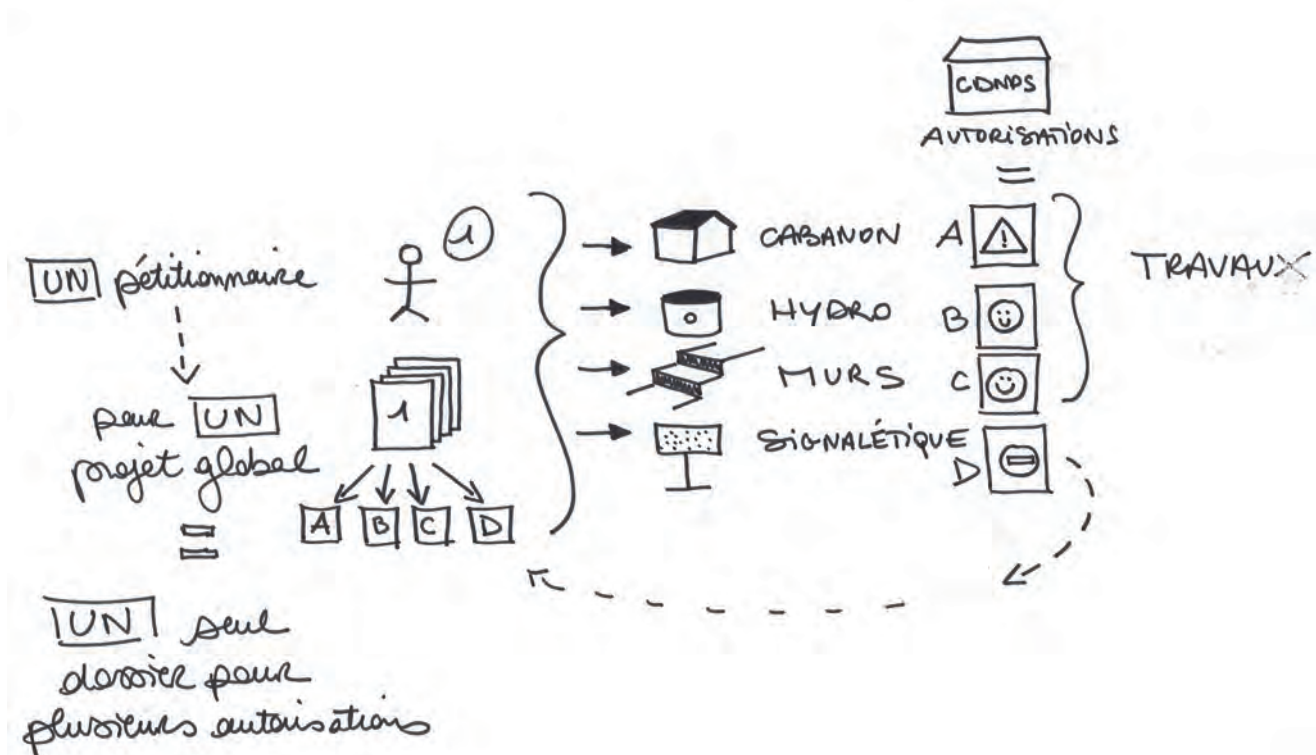 CDNPS
AUTORISATIONS
=
UN pétitionnaire
pour UN
projet global
=
UN seul
dossier pour
plusieurs autorisations
1
1
A B C D
CABANON A
HYDRO B
MURS C
SIGNALÉTIQUE
D
TRAVAUX